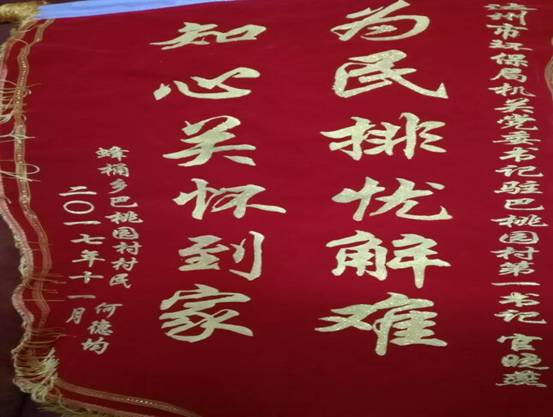 达州市环保局机关党委书记驻巴桃园村第一书记 官晓燕
为民排忧解难
知心关怀到家
蜂桶乡巴桃园村村民 何德均
二〇一七年十一月